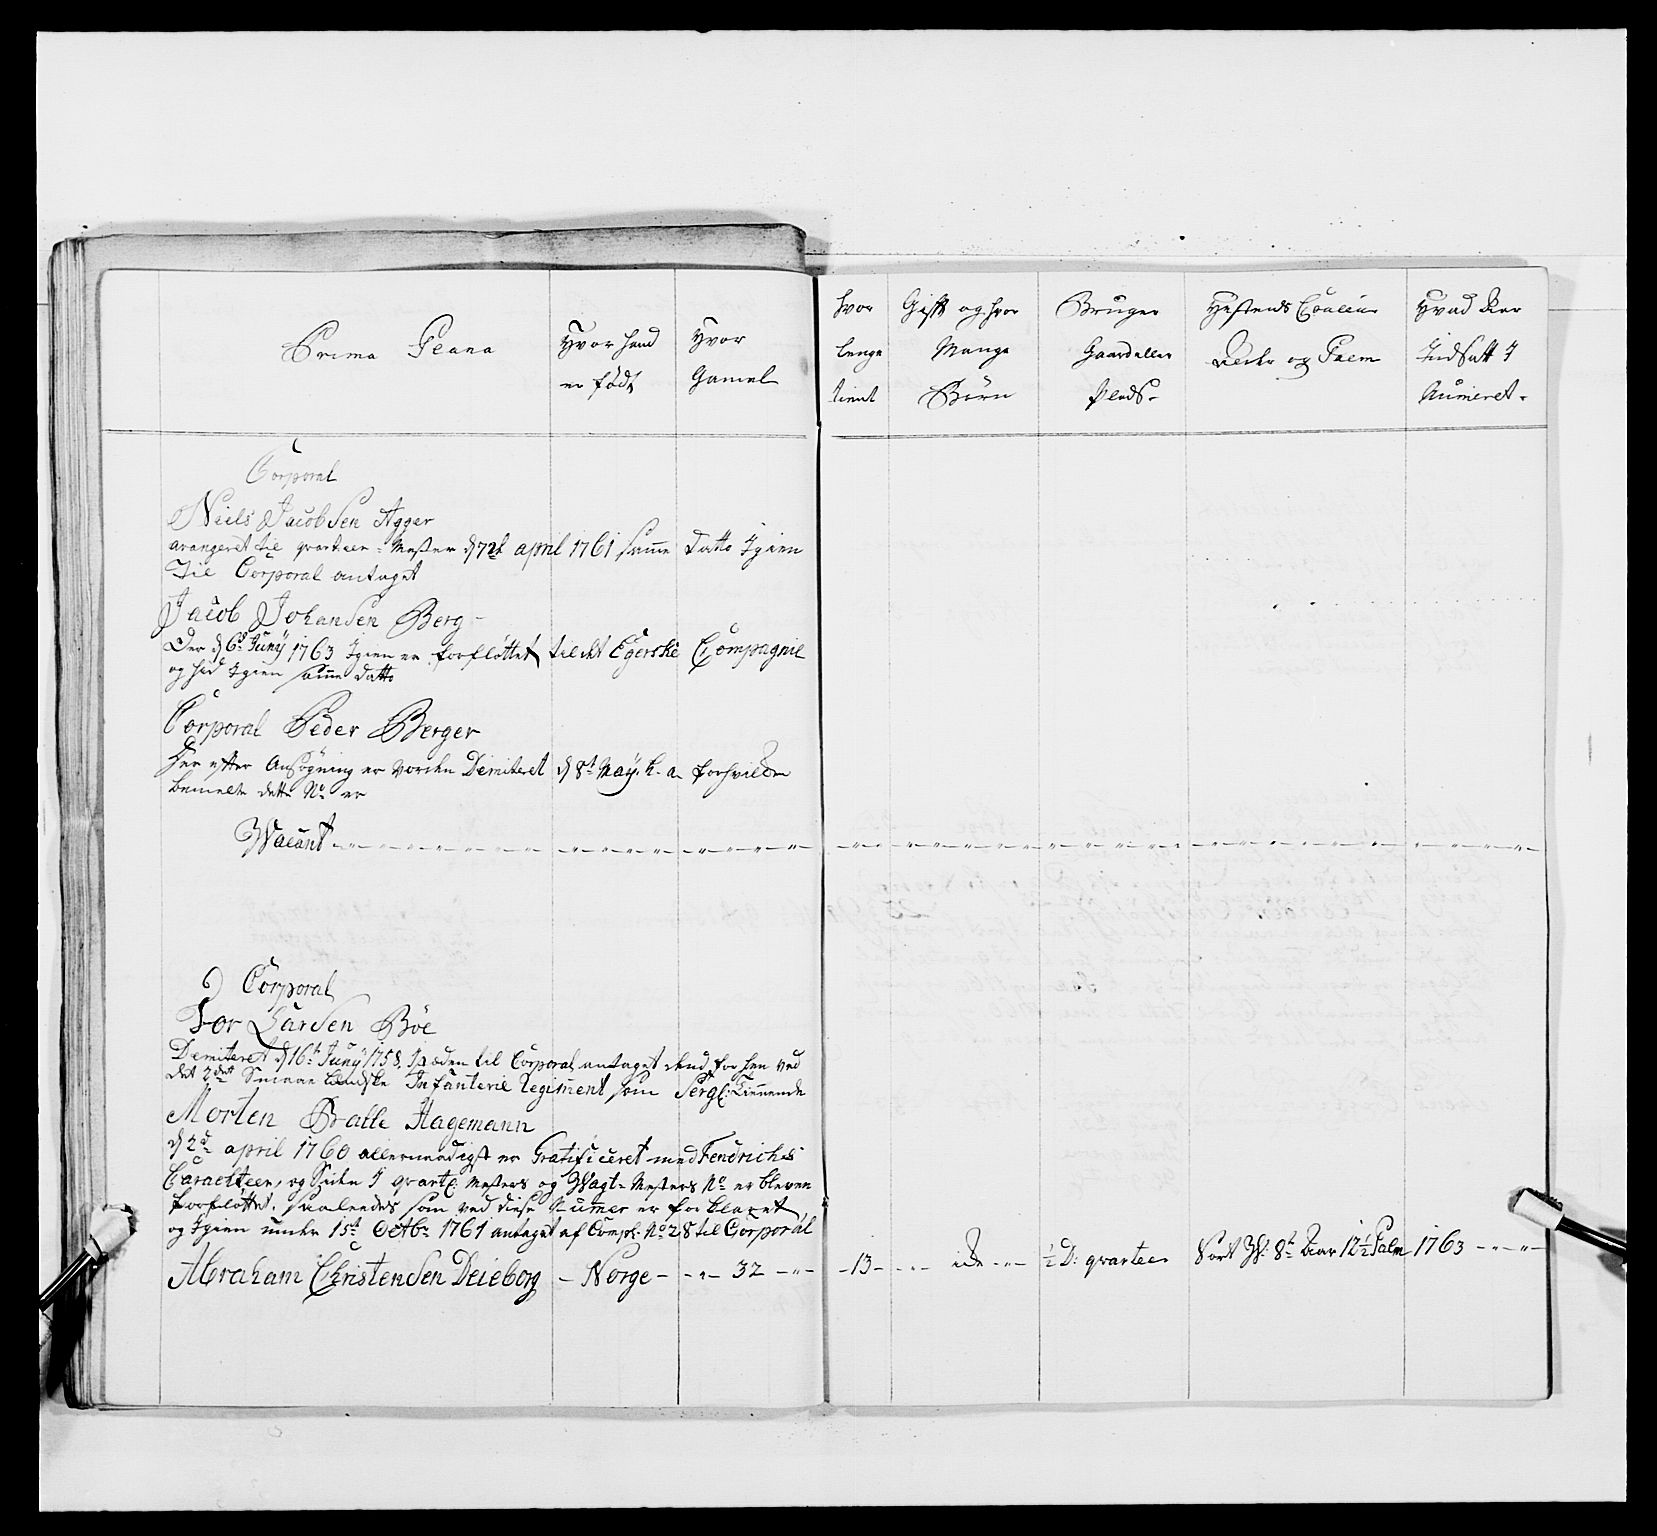 Prima Plana
Hvor hand
er födt
Hvor
Gamel
hvor
lenge
tient
Gift og hvor
Mange
Börn
Bruger
Gaard eller
Plads
Hestens Couleur
Alder og Palm
Hvad Aar
Indsatt I
Numeret
Corporal
Niels Jacobsen Agger
arangeret til qvarteer-Mester d 7de april 1761 samme datto Igien
til Corporal antaget
Jacob Johansen Berg
Der d 6te Juny 1763 Igien er forflöttet til det Egerske Compagnie
og hid Igien samme datto
Corporal Peder Berger
Der efter Ansögning er vorden Demiteret d 8t May h. a. forhvilden
bemelte dette No er
Wacant
2 Corporal
Tor Larsen Böe
Demiteret d 16t Juny 1758, til Corporal antaget dend for hen ved
det 2det Infanterie Regiment som Serg: tienende
Morten Balle Hagemann
d 2d april 1760 allernaadigst er Gratificeret med Fendrichs
Caracteer, og siden I qvarteer Mesters og Wagt-Mesters No er bleven
forflöttet, saaledes som ved disse Numer er forklaret,
og Igien under 15t Octbr 1761 antaget af Comp: No 28 til Corporal
Abraham Christensen Deieborg - Norge - 32 - 13 - 1/2 D: qvarteer Sort W: 8te Aar 12 1/2 Palm 1763